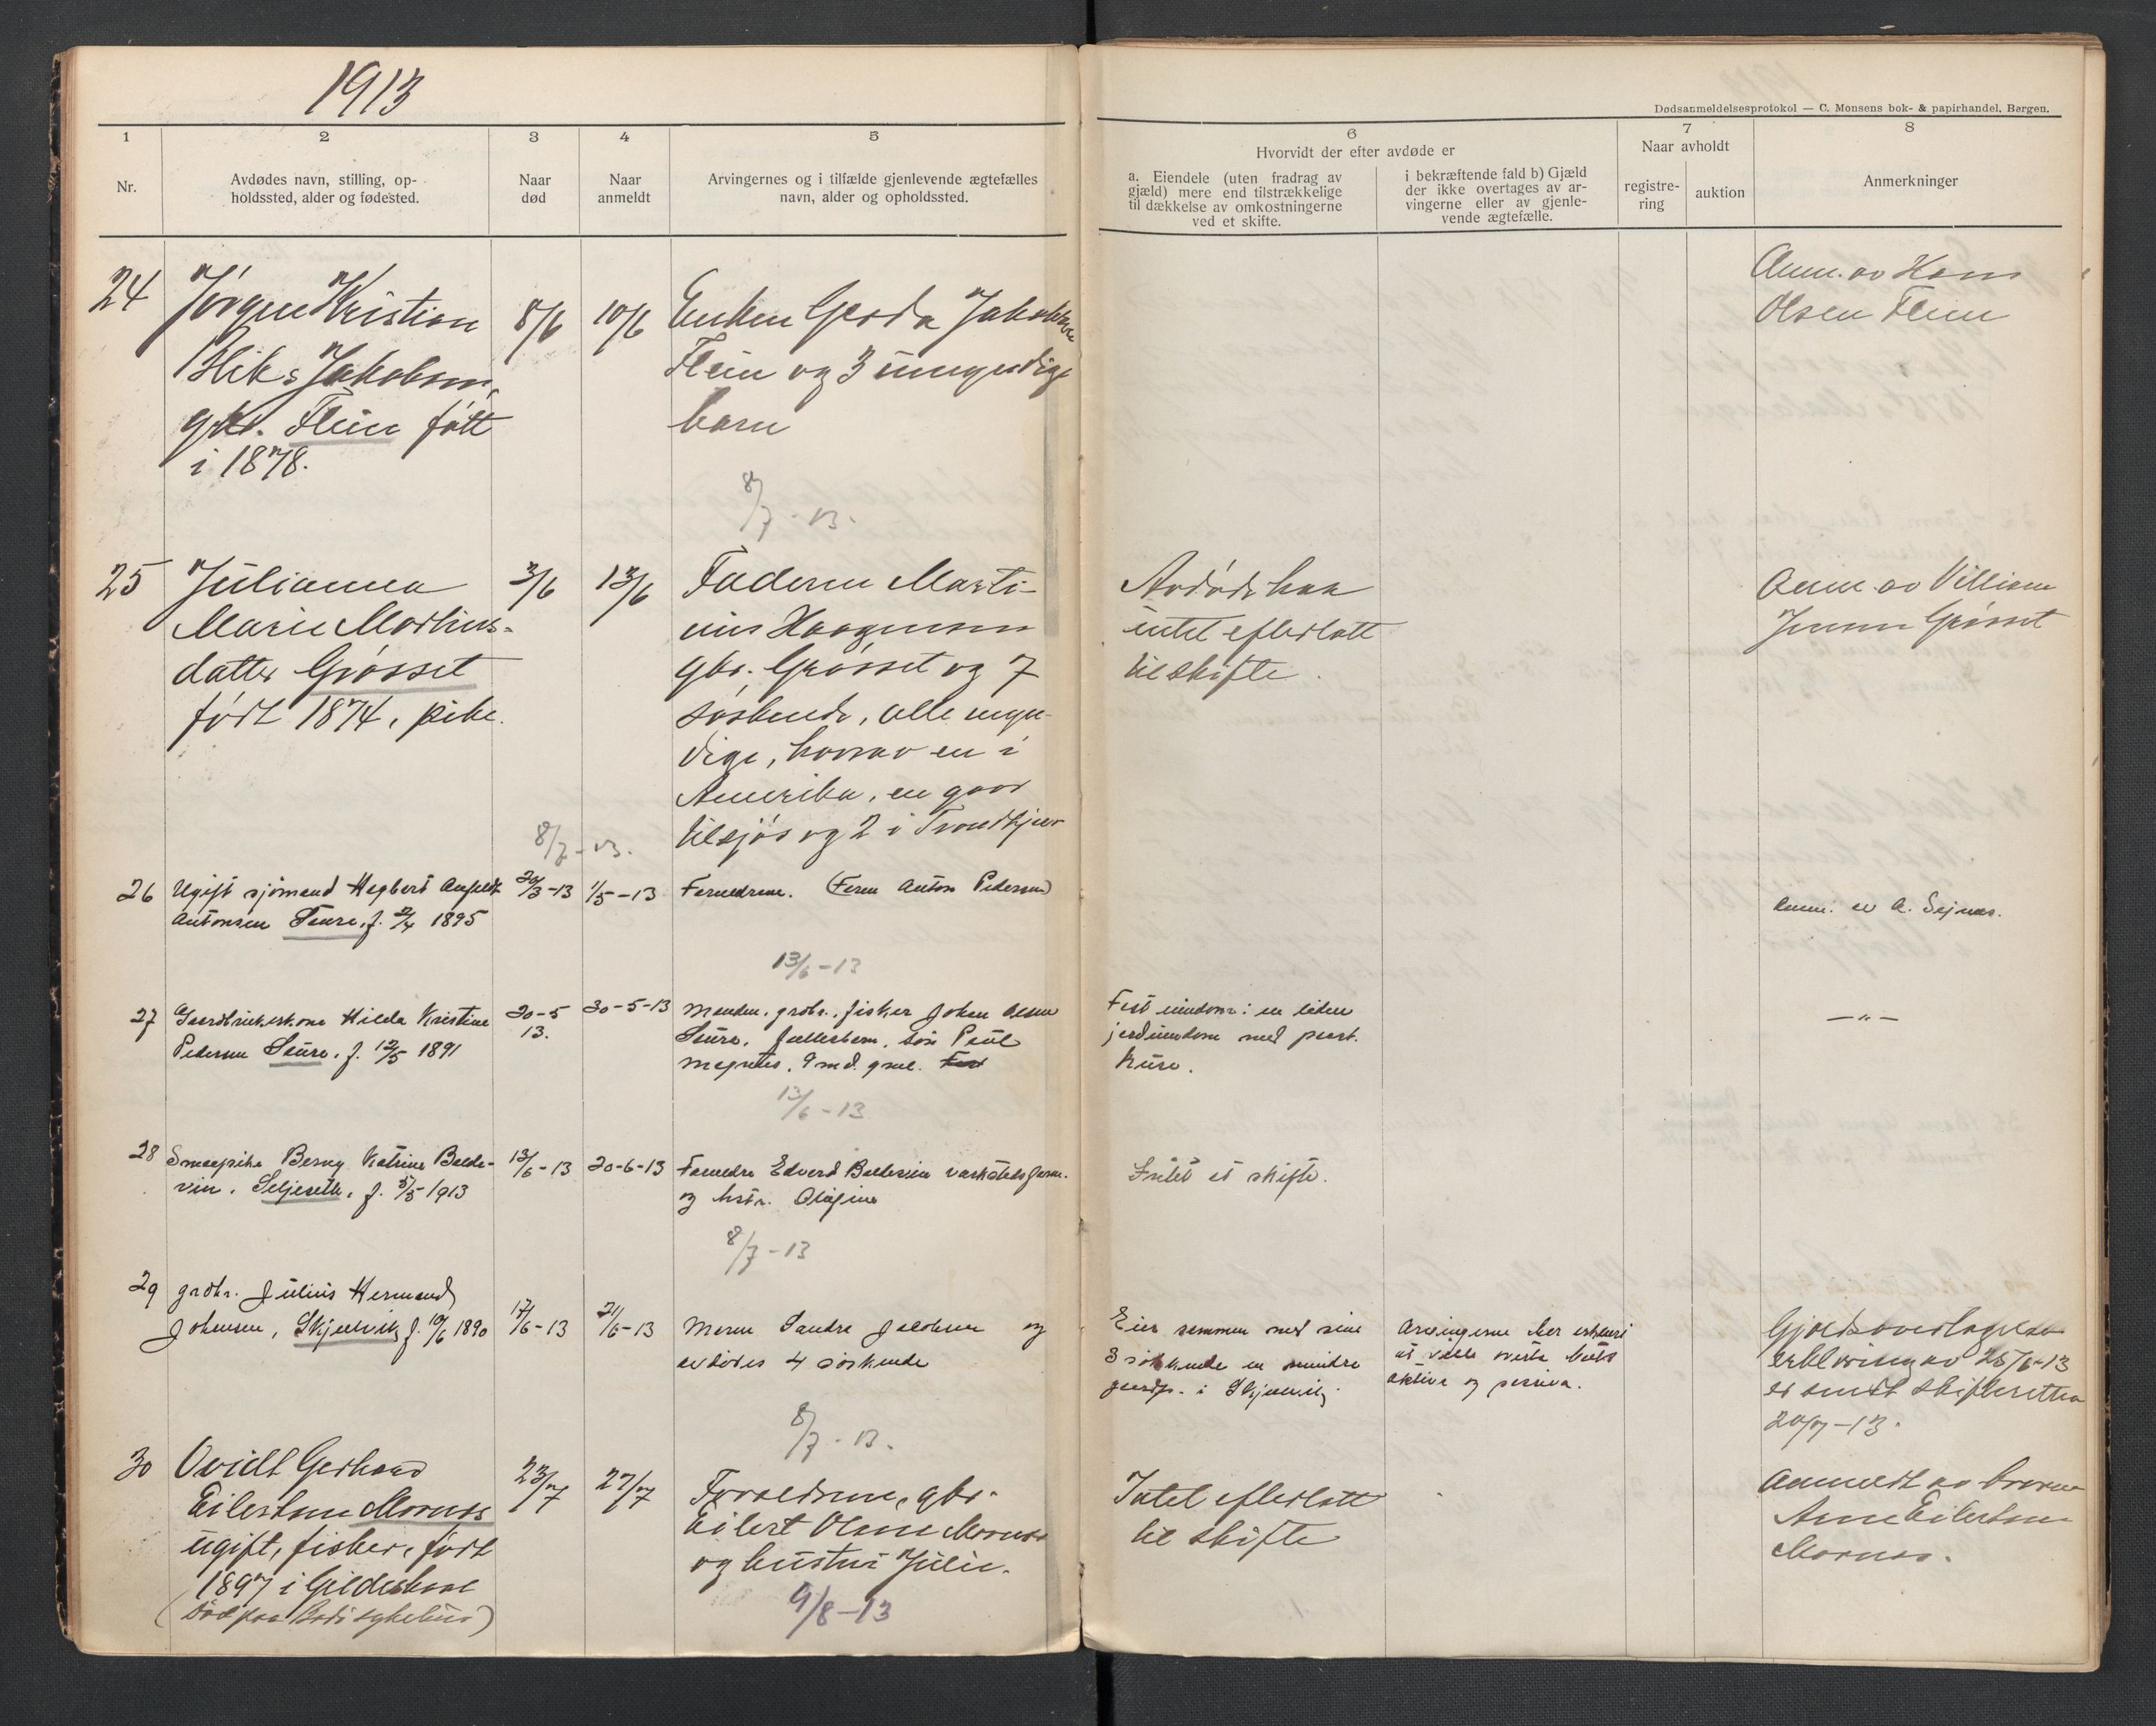 1913
Dødsanmeldelsesprotokol — C. Monsens bok- & papirhandel, Bergen.
1
2
3
4
5
6
7
8
Nr.
Avdødes navn, stilling, op-
holdssted, alder og fødested.
Naar
død
Naar
anmeldt
Arvingernes og i tilfælde gjenlevende ægtefælles
navn, alder og opholdssted.
Hvorvidt der efter avdøde er
a. Eiendele (uten fradrag av
gjæld) mere end tilstrækkelige
til dækkelse av omkostningerne
ved et skifte.
i bekræftende fald b) Gjæld
der ikke overtages av ar-
vingerne eller av gjenle-
vende ægtefælle.
Naar avholdt
registre-
ring
auktion
Anmerkninger
24
Jörgen Kristian
Jakobsen,
gbr. Flein född
i 1878.
8/6
10/6
Enken Gerda Jakobsen
Flein og 3 umyndige
barn
8/7-13.
Anm. av Hans
Olsen Flein
25
Julianna
Marie Martinus-
datter Grösset
född 1874, pike.
3/6
13/6
Faderen Marti-
nus Haagensen
gbr. Grösset og 7
söskende, alle myn-
dige, hvorav en i
Amerika, en gaar
tilsjös og 2 i Trondhjem
8/7-13.
Avdöde har
intet efterlatt
til skifte.
Anm. av Villiam
Jensen Grösset
26
Ugift sjömand Hagbart
Antonsen Saura, f. 1895
20/3-13
1/5-13
Foræeldrene. (Faren Anton Pedersen)
13/6-13
Anm. av A. Sejnæs.
27
Gaardbrukerkone Hilda Kristine
Pedersen Saura, f. 12/5 1891
20-5
13.
30-5-13
Manden, grdbr., fisker Johan Olsen
Saura, fællesbarn, sön Paul
Magnus, 9 md. gml.
13/6-13
Fast eiendom: en liten
jordeiendom med paast.
huse.
—"—
28
Smaapike Berny Katrine Balde-
vin, Seljeseth, f. 5/5-1913
13/6-13
20-6-13
Foræeldre Edvard Baldevin
og hstr. Olufine
8/7-13
Intet at skifte.
29
grdbr. Julius Hermand
Johansen, Skjelvik f. 19/6 1890
17/6-13
21/6-13
Moren Sandra Jakobsen og
avdödes 4 söskende
8/7-13.
Eier sammen med sine
3 söskende en mindre
gaardp. i Skjelvik.
Arvingerne har erklæri
at ville overta bode
aktiva og passiva.
Gjældsovertagelses
erklæring av 25/6-13
er sendt skifteretten
20/7-13.
30
Ovidt Gerhard
Eilertsen Mornes
ugift, fisker, född
1897 i Gildeskaal
(död paa Bodö sykehus)
23/7
27/7
Foræeldrene, gbr.
Eilert Olsen Mornes
og hustru Julie.
9/8-13
Intet efterlatt
til skifte
Anmeldt av broren
Arne Eilertsen
Mornes.